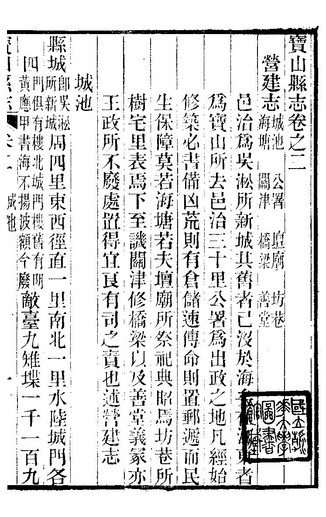 寶山縣志卷之二
營建志 城池 公署 壇廟 坊巷
海塘 關津 橋梁 善堂
邑治爲吳淞所新城其舊者已沒於海
者
爲寶山所去邑治三十里公署爲出政之地凡經始
修築必書備凶荒則有倉儲速傳命則置郵遞而民
生保障莫若海塘若夫壇廟所祭祀典昭焉坊巷所
樹宅里表焉下至譏關津修橋梁以及善堂義冢亦
王政所不廢處置得宜良有司之責也述營建志
城池
縣城 卽吳淞
所新城 周四里東西徑直一里南北一里水陸城門各
四 門俱有樓北城門樓舊有明
黃應甲書海不揚波額今廢 敵臺九雉堞一千一百九
寶山縣志 卷二 城池 一